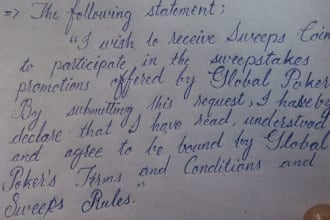 => The following statement;
"I wish to receive Sweeps Coin
to participate in the sweepstakes
promotions offered by Global Poker
By submitting this request, I hereby
declare that I have read, understood
and agree to be bound by Global
Poker's Terms and Conditions and
Sweeps Rules."